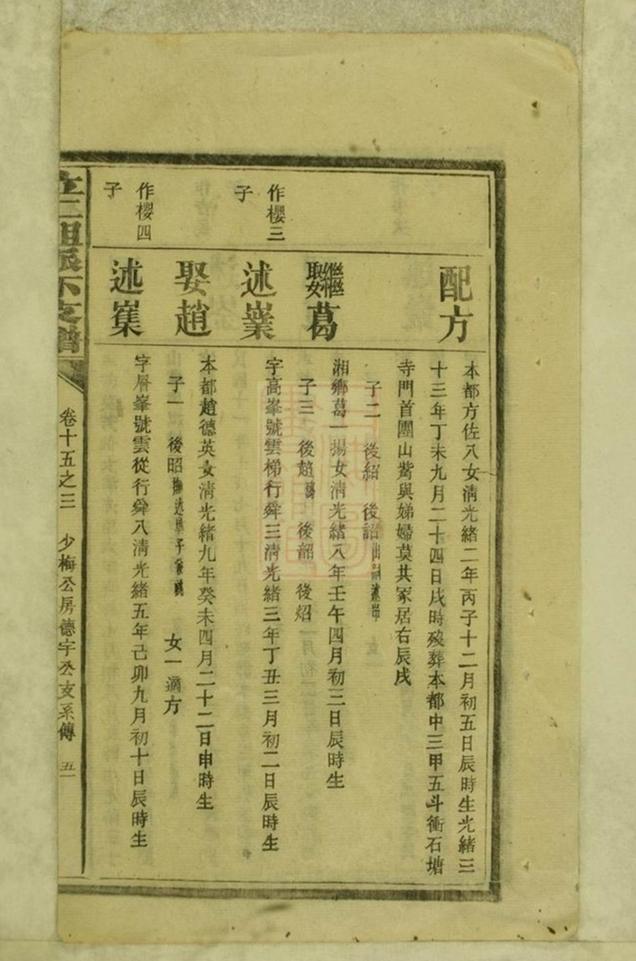 配方
本都方佐八女淸光緖二年丙子十二月初五日辰時生光緖三
十三年丁未九月二十四日戌時歿葬本都中三甲五斗衝石塘
寺門首團山嘴與娣婦莫共冢居右辰戌
子二 後紹 後詔
繼娶葛
湘鄉葛一揚女淸光緖八年壬午四月初三日辰時生
子三 後趙殤 後韶 後炤
作櫻三
子
述嶪
字高峯號雲梯行舜三淸光緖三年丁丑三月初二日辰時生
娶趙
本都趙德英女淸光緖九年癸未四月二十二日申時生
子一 後昭 女一適方
作櫻四
子
述嶪
字層峯號雲從行舜八淸光緖五年己卯九月初十日辰時生
派下支譜
卷十五之三 少梅公房德宇公支系傳 五一